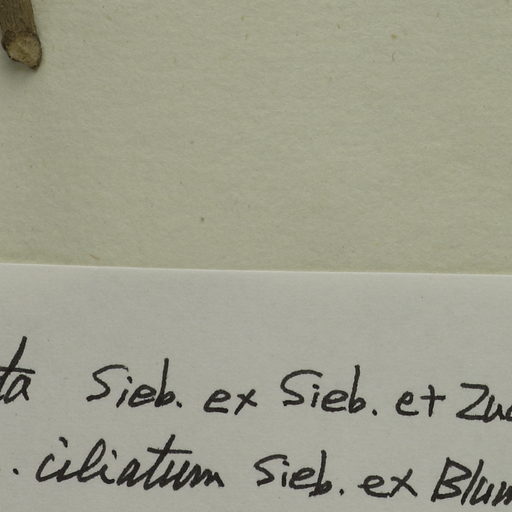 ta Sieb. ex Sieb. et Zuc
. ciliatum Sieb. ex Blum